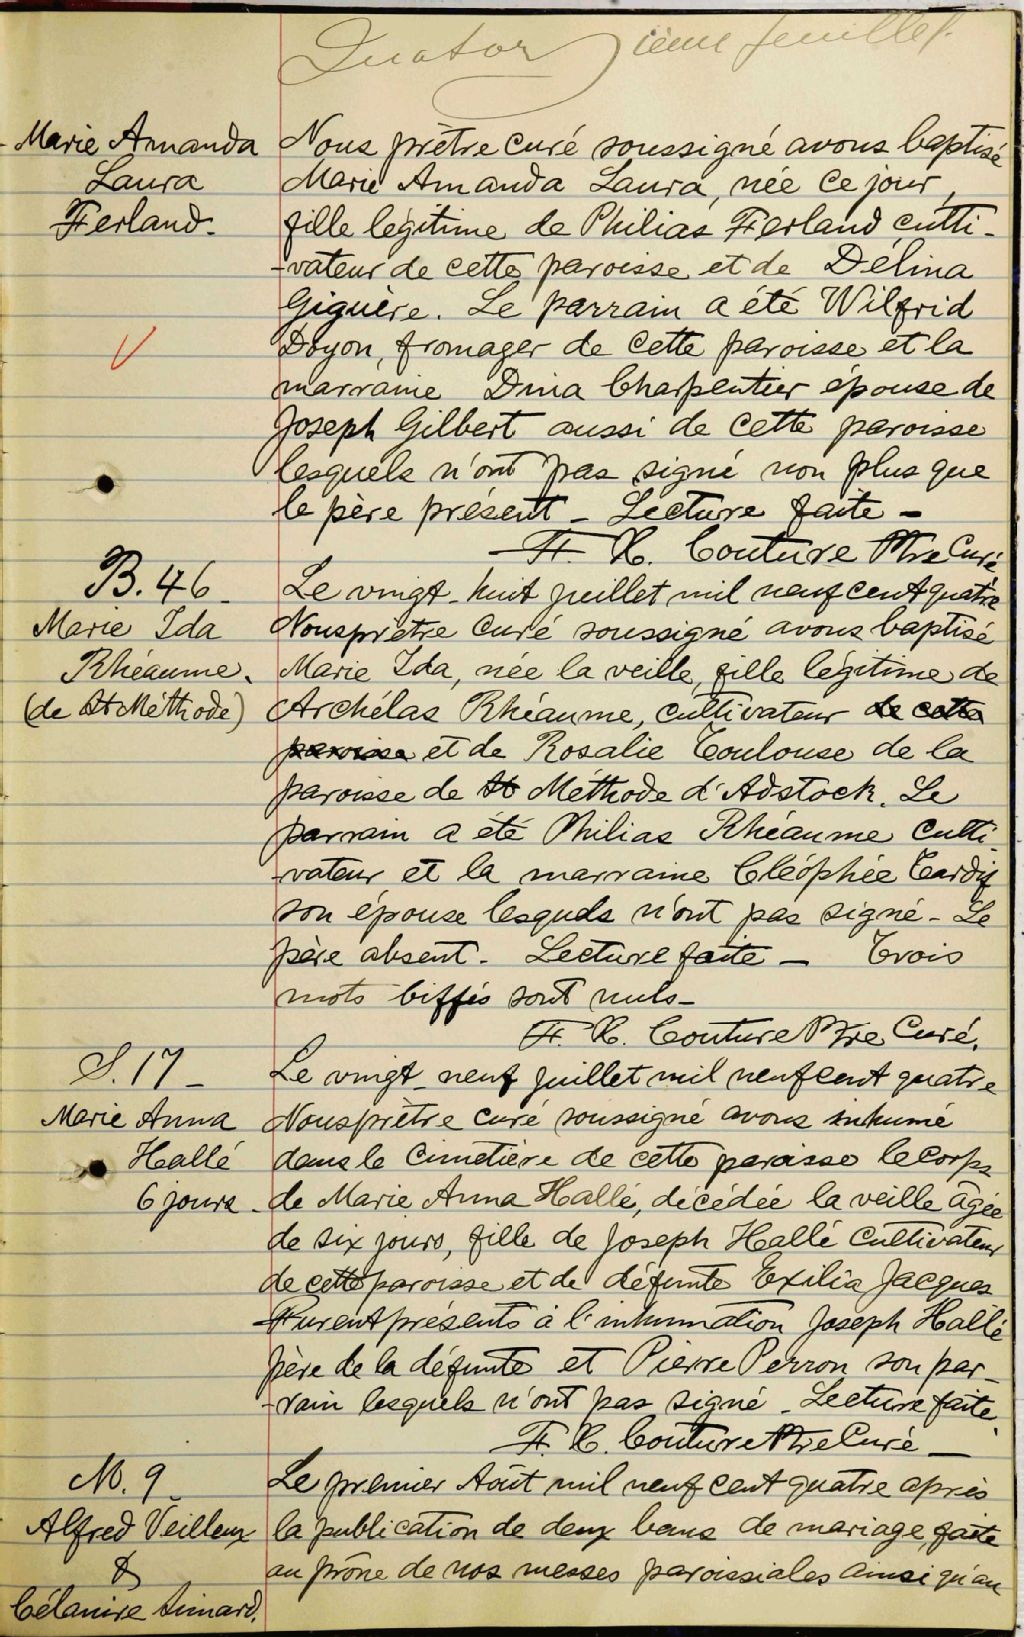 Quatorzième feuillet.
Marie Amanda
Laura
Ferland.
Nous prêtre curé soussigné avons baptisé
Marie Amanda Laura, née ce jour,
fille légitime de Philias Ferland culti-
-vateur de cette paroisse et de Délina
Giguère. Le parrain a été Wilfrid
Doyon, fromager de cette paroisse et la
marraine Dina Charpentier épouse de
Joseph Gilbert aussi de cette paroisse
lesquels n'ont pas signé non plus que
le père présent - Lecture faite -
F. X. Couture Ptre Curé
B. 46 -
Marie Ida
Rhéaume.
(de St Méthode)
Le vingt-huit juillet mil neuf cent quatre
Nous prêtre curé soussigné avons baptisé
Marie Ida, née la veille, fille légitime de
Archélas Rhéaume, cultivateur de cette
paroisse et de Rosalie Toulouse de la
paroisse de St Méthode d'Adstock. Le
parrain a été Philias Rhéaume culti-
-vateur et la marraine Cléophée Tardif
son épouse lesquels n'ont pas signé - Le
père absent - Lecture faite - Trois
mots biffés sont nuls -
F. X. Couture Ptre Curé.
S. 17 -
Marie Anna
Hallé
6 jours -
Le vingt-neuf juillet mil neuf cent quatre
Nous prêtre curé soussigné avons inhumé
dans le cimetière de cette paroisse le corps
de Marie Anna Hallé, décédée la veille âgée
de six jours, fille de Joseph Hallé cultivateur
de cette paroisse et de défunte Exilia Jacques
Furent présents à l'inhumation Joseph Hallé
père de la défunte et Pierre Perron son par-
-rain lesquels n'ont pas signé - Lecture faite.
F. X. Couture Ptre Curé -
M. 9 -
Alfred Veilleux
&
Célanire Simard.
Le premier Août mil neuf cent quatre après
la publication de deux bans de mariage, faite
au prône de nos messes paroissiales ainsi qu'au